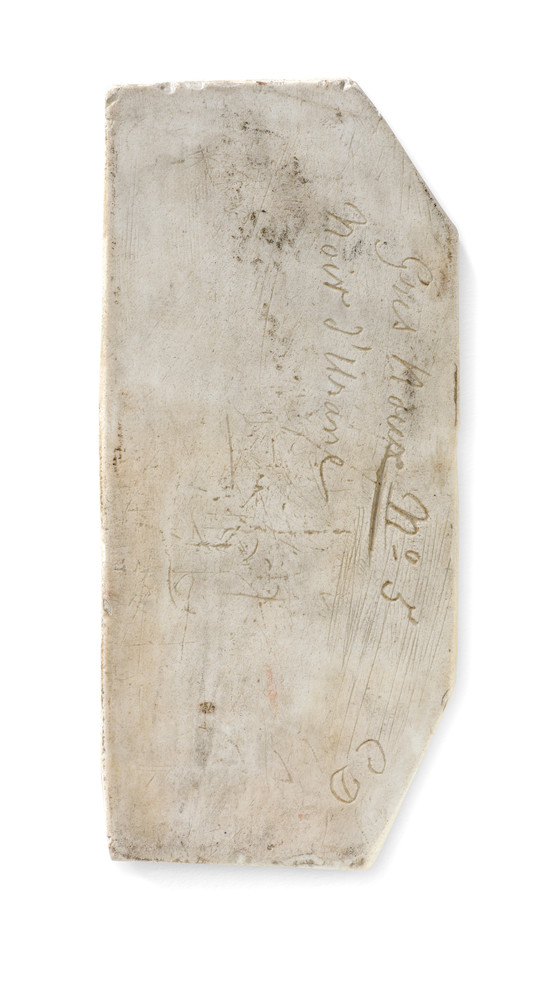 Gris Roux No 5
Noir d'Urane
CD